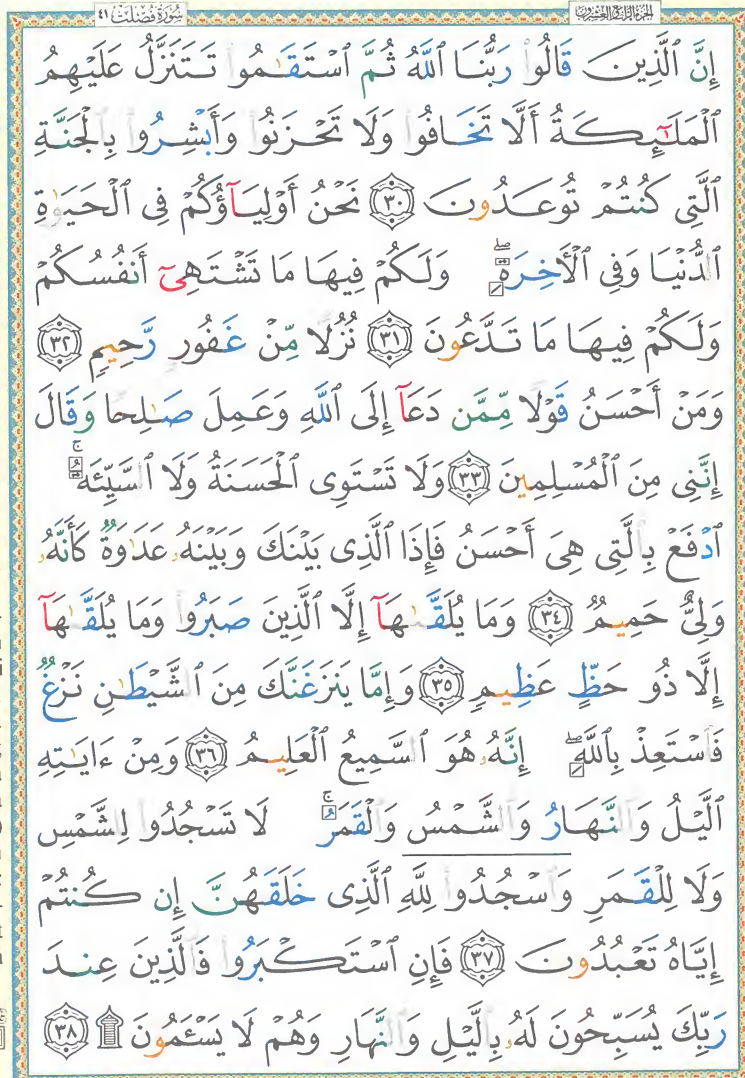 الجزء الرابع والعشرون
سورة فصلت ٤١
إِنَّ ٱلَّذِينَ قَالُوا۟ رَبُّنَا ٱللَّهُ ثُمَّ ٱسْتَقَـٰمُوا۟ تَتَنَزَّلُ عَلَيْهِمُ
ٱلْمَلَـٰٓئِكَةُ أَلَّا تَخَافُوا۟ وَلَا تَحْزَنُوا۟ وَأَبْشِرُوا۟ بِٱلْجَنَّةِ
ٱلَّتِى كُنتُمْ تُوعَدُونَ ﴿٣٠﴾ نَحْنُ أَوْلِيَآؤُكُمْ فِى ٱلْحَيَوٰةِ
ٱلدُّنْيَا وَفِى ٱلْـَٔاخِرَةِ ۖ وَلَكُمْ فِيهَا مَا تَشْتَهِىٓ أَنفُسُكُمْ
وَلَكُمْ فِيهَا مَا تَدَّعُونَ ﴿٣١﴾ نُزُلًا مِّنْ غَفُورٍ رَّحِيمٍ ﴿٣٢﴾
وَمَنْ أَحْسَنُ قَوْلًا مِّمَّن دَعَآ إِلَى ٱللَّهِ وَعَمِلَ صَـٰلِحًا وَقَالَ
إِنَّنِى مِنَ ٱلْمُسْلِمِينَ ﴿٣٣﴾ وَلَا تَسْتَوِى ٱلْحَسَنَةُ وَلَا ٱلسَّيِّئَةُ ۚ
ٱدْفَعْ بِٱلَّتِى هِىَ أَحْسَنُ فَإِذَا ٱلَّذِى بَيْنَكَ وَبَيْنَهُۥ عَدَٰوَةٌ كَأَنَّهُۥ
وَلِىٌّ حَمِيمٌ ﴿٣٤﴾ وَمَا يُلَقَّىٰهَآ إِلَّا ٱلَّذِينَ صَبَرُوا۟ وَمَا يُلَقَّىٰهَآ
إِلَّا ذُو حَظٍّ عَظِيمٍ ﴿٣٥﴾ وَإِمَّا يَنزَغَنَّكَ مِنَ ٱلشَّيْطَـٰنِ نَزْغٌ
فَٱسْتَعِذْ بِٱللَّهِ ۖ إِنَّهُۥ هُوَ ٱلسَّمِيعُ ٱلْعَلِيمُ ﴿٣٦﴾ وَمِنْ ءَايَـٰتِهِ
ٱلَّيْلُ وَٱلنَّهَارُ وَٱلشَّمْسُ وَٱلْقَمَرُ ۚ لَا تَسْجُدُوا۟ لِلشَّمْسِ
وَلَا لِلْقَمَرِ وَٱسْجُدُوا۟ لِلَّهِ ٱلَّذِى خَلَقَهُنَّ إِن كُنتُمْ
إِيَّاهُ تَعْبُدُونَ ﴿٣٧﴾ فَإِنِ ٱسْتَكْبَرُوا۟ فَٱلَّذِينَ عِندَ
رَبِّكَ يُسَبِّحُونَ لَهُۥ بِٱلَّيْلِ وَٱلنَّهَارِ وَهُمْ لَا يَسْـَٔمُونَ ۩ ﴿٣٨﴾